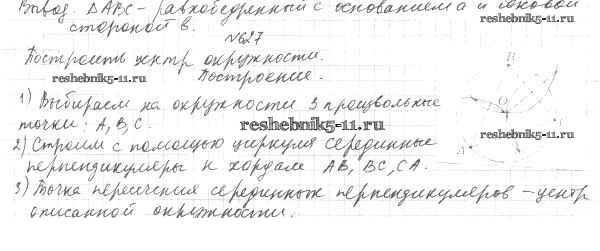 Вывод. ΔABC - равнобедренный с основанием a и боковой
стороной b.
№627
Построить центр окружности.
reshebnik5-11.ru
Построение.
reshebnik5-11.ru
B
1) Выбираем на окружности 3 произвольные
точки: A, B, C.
reshebnik5-11.ru
reshebnik5-11.ru
O
2) Строим с помощью циркуля серединные
перпендикуляры к хордам AB, BC, CA.
3) Точка пересечения серединных перпендикуляров - центр
описанной окружности.